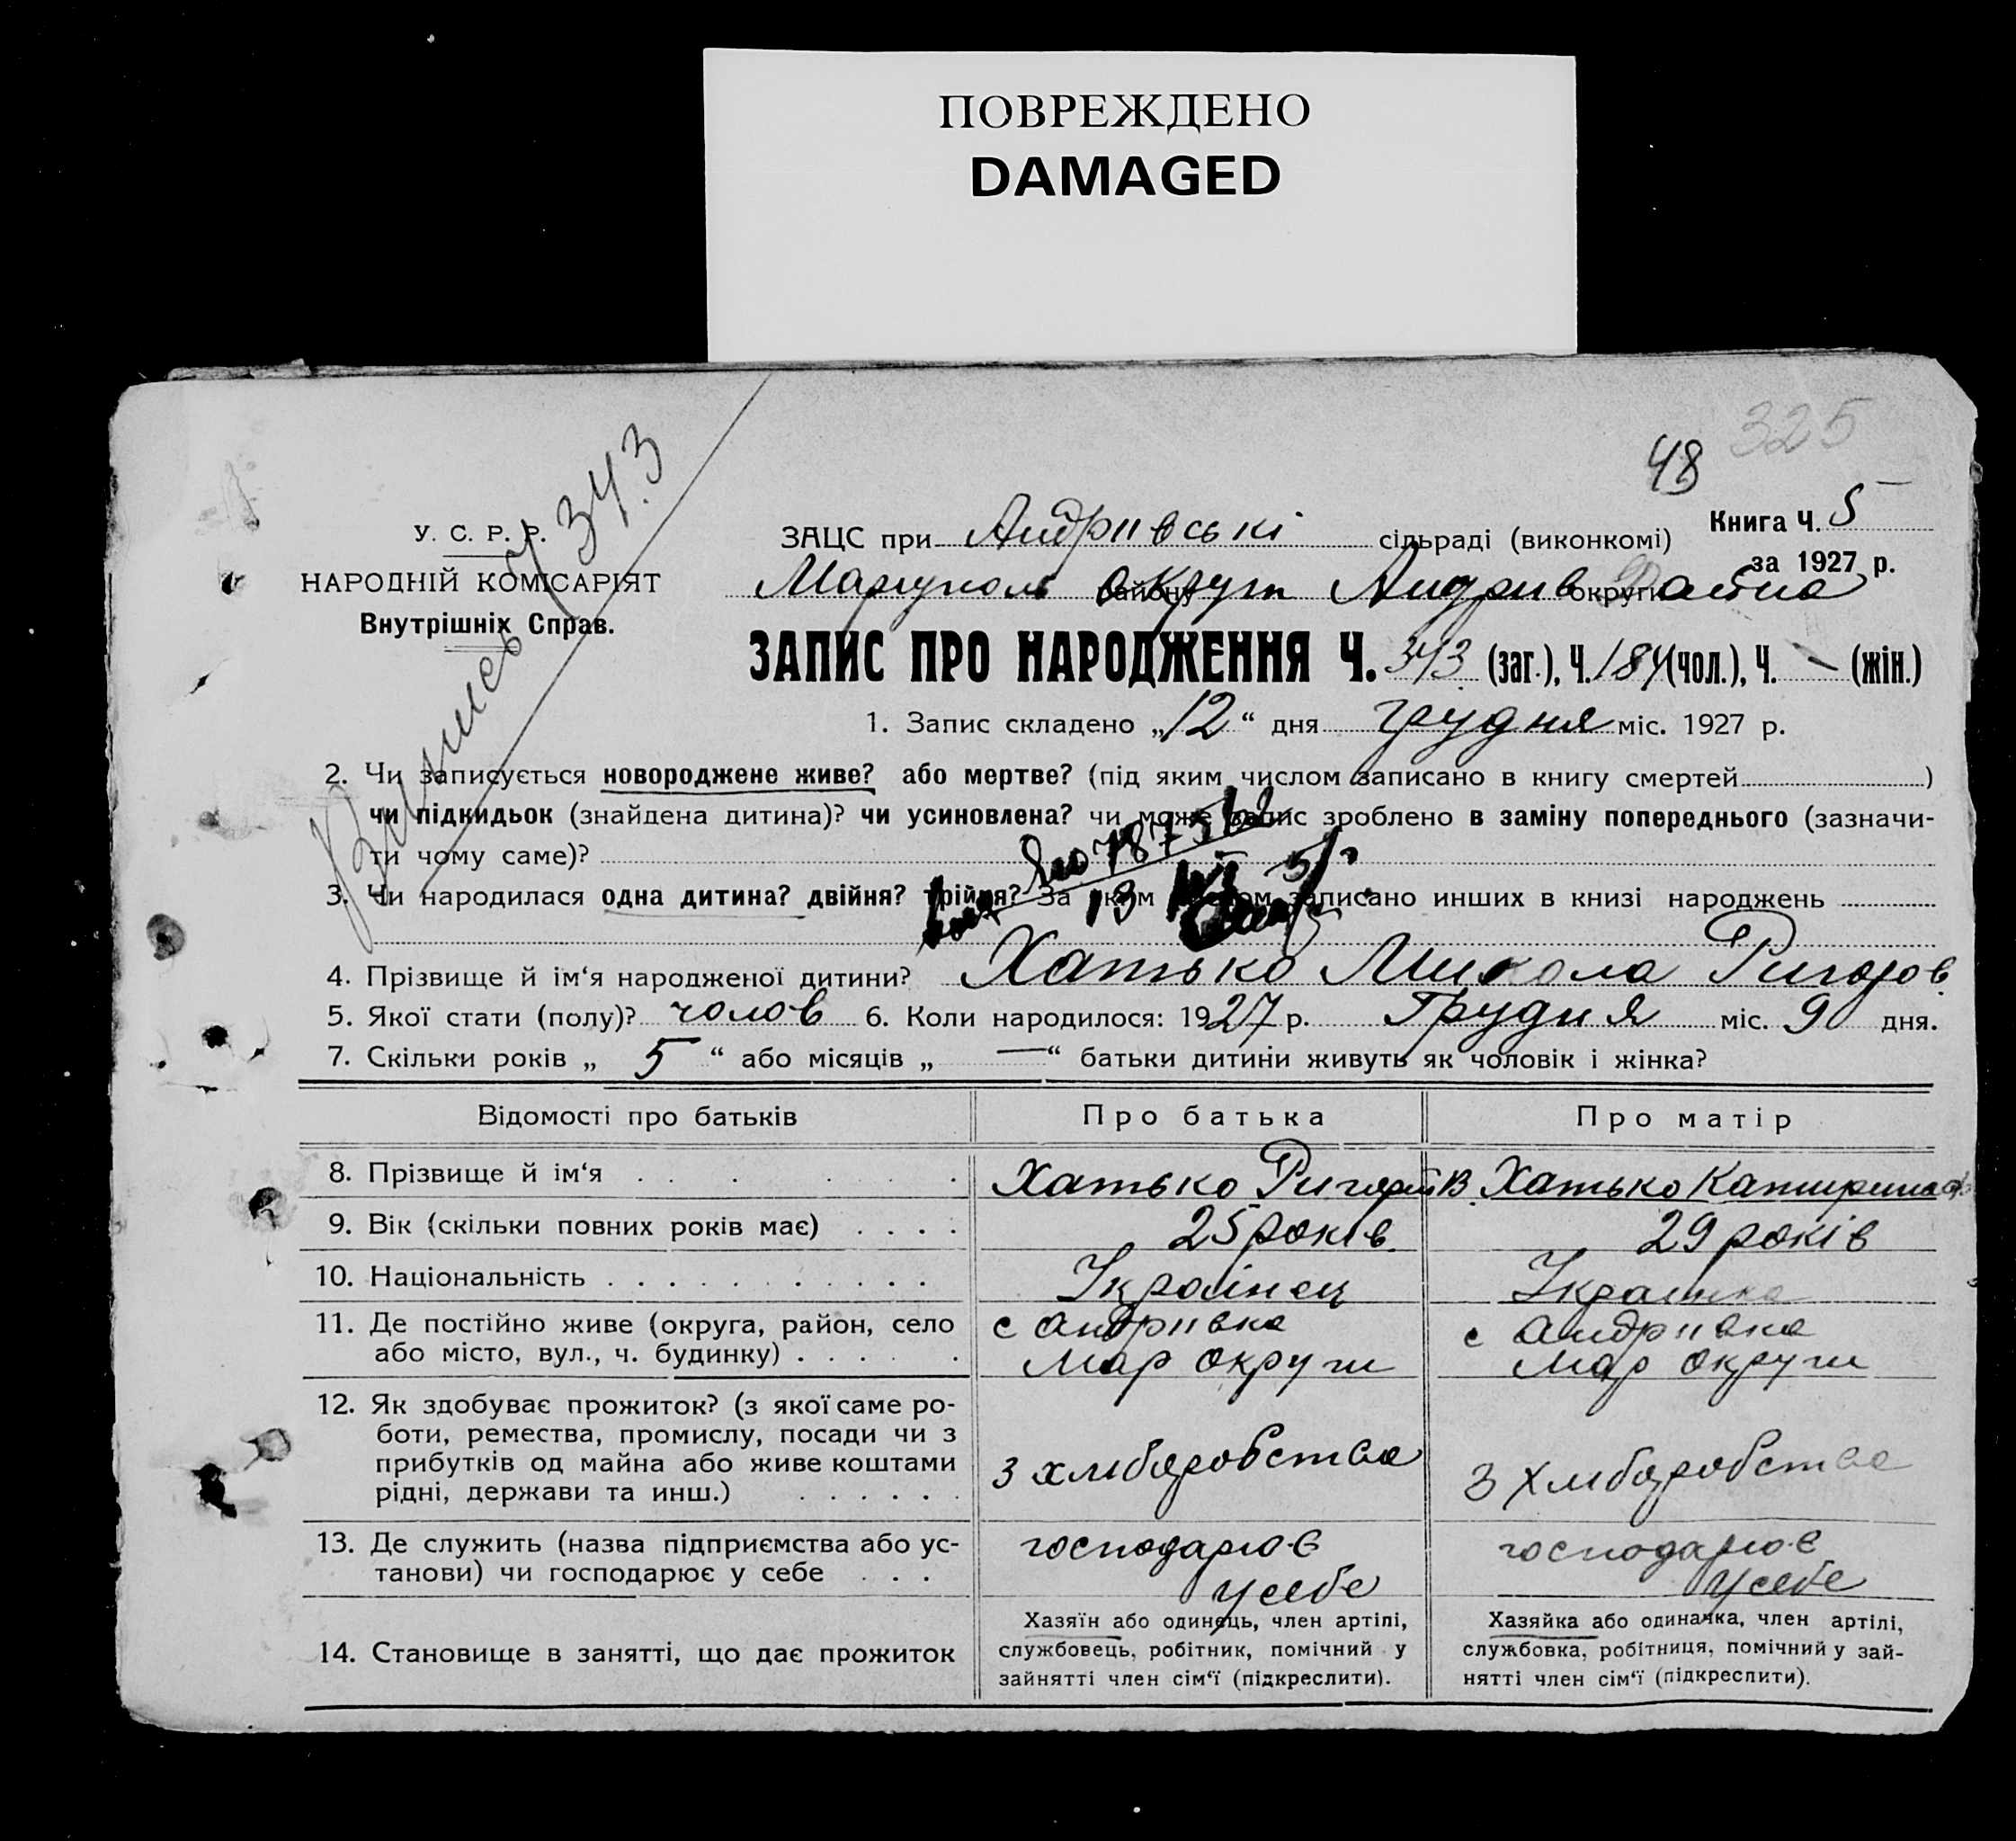 ПОВРЕЖДЕНО
DAMAGED
325
48
Ч 343
У. С. Р. Р.
НАРОДНІЙ КОМІСАРІЯТ
Внутрішніх Справ.
ЗАЦС при Андріівські сільраді (виконкомі) Книга Ч. 5
за 1927 р.
Маріуполь округи району Андріів округи
ЗАПИС ПРО НАРОДЖЕННЯ Ч. 343 (заг.), Ч. 184 (чол.), Ч. – (жін.)
1. Запис складено „12“ дня грудня міс. 1927 р.
2. Чи записується новороджене живе? або мертве? (під яким числом записано в книгу смертей )
чи підкидьок (знайдена дитина)? чи усиновлена? чи може запис зроблено в заміну попереднього (зазначи-
ти чому саме)?
3. Чи народилася одна дитина? двійня? трійня? За яким числом записано инших в книзі народжень
4. Прізвище й ім‘я народженої дитини? Хатько Микола Ригоров.
5. Якої стати (полу)? чолов 6. Коли народилося: 1927 р. Грудня міс. 9 дня.
7. Скільки років „ 5 “ або місяців „ — “ батьки дитини живуть як чоловік і жінка?
Відомості про батьків Про батька Про матір
8. Прізвище й ім‘я Хатько Ригорій В. Хатько Катирина
9. Вік (скільки повних років має) 25 років. 29 років
10. Національність Украінец Украінка
11. Де постійно живе (округа, район, село с Андріівка с Андріівка
або місто, вул., ч. будинку) Мар округи Мар округи
12. Як здобуває прожиток? (з якої саме ро-
боти, ремества, промислу, посади чи з
прибутків од майна або живе коштами з хліборобства З хліборобства
рідні, держави та инш.)
13. Де служить (назва підприємства або ус- господарює господарює
танови) чи господарює у себе у себе у себе
14. Становище в занятті, що дає прожиток
Хазяїн або одинець, член артілі,
службовець, робітник, помічний у
зайнятті член сім‘ї (підкреслити).
Хазяйка або одиначка, член артілі,
службовка, робітниця, помічний у зай-
нятті член сім‘ї (підкреслити).